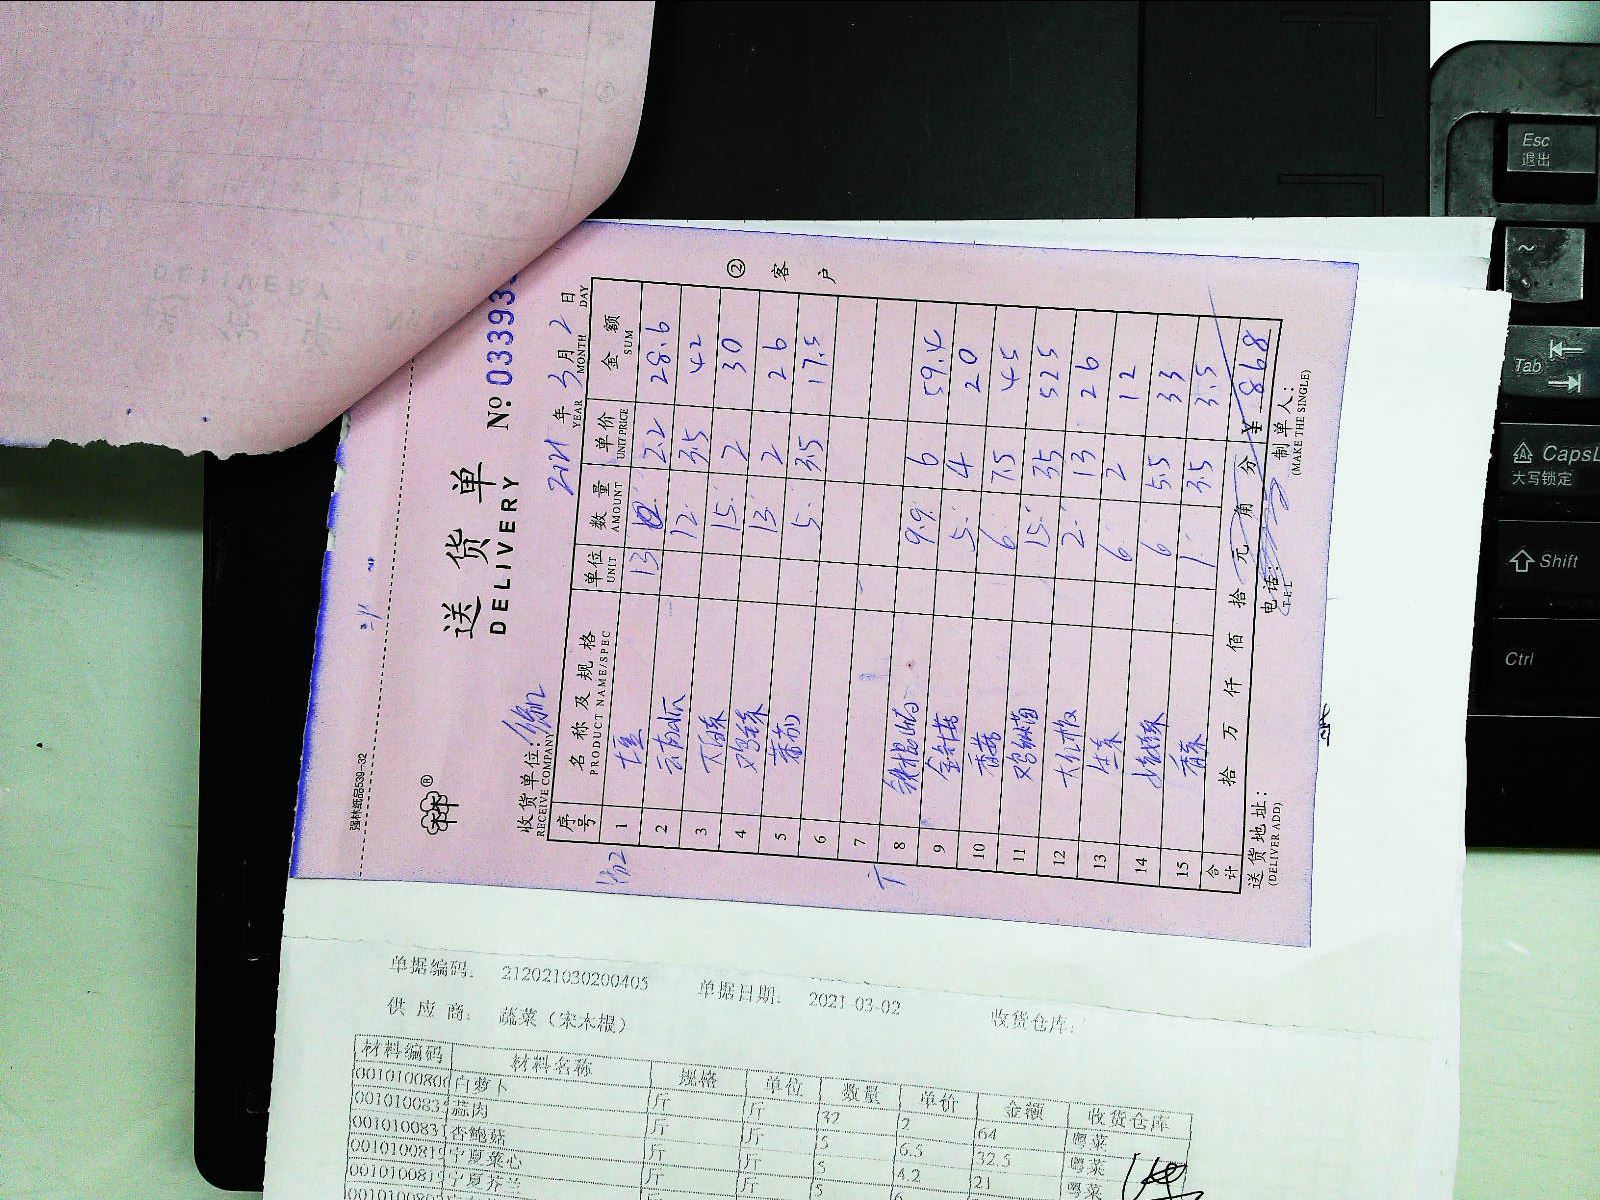 强林纸品539-32
送货单
DELIVERY
№ 03393
收货单位:
RECEIVE COMPANY
2021年3月2日
YEAR MONTH DAY
序号 名称及规格 单位 数量 单价 金额
PRODUCT NAME/SPEC UNIT AMOUNT UNIT PRICE SUM
1 13 2.2 28.6
2 云南小瓜 12 3.5 42
3 15 2 30
4 13 2 26
5 5 3.5 17.5
6
7
8 铁棍山药 9.9 6 59.4
9 金针菇 5 4 20
10 香菇 6 7.5 45
11 鸡枞菌 15 35 525
12 大红椒 2 13 26
13 生菜 6 2 12
14 6 5.5 33
15 香菜 1 3.5 3.5
合计 拾 万 仟 佰 拾 元 角 分 ¥ 868
送货地址:
(DELIVER ADD)
电话:
(TEL)
制单人:
(MAKE THE SINGLE)
② 客户
单据编码: 212021030200405 单据日期: 2021-03-02 收货仓库:
供应商: 蔬菜（宋木棍）
材料编码 材料名称 规格 单位 数量 单价 金额 收货仓库
白萝卜 斤 斤 32 2 64 粤菜
蒜肉 斤 斤 5 6.5 32.5 粤菜
杏鲍菇 斤 斤 5 4.2 21 粤菜
宁夏菜心 斤 斤 5 6
宁夏芥兰
Esc
退出
~
Tab
CapsL
大写锁定
Shift
Ctrl